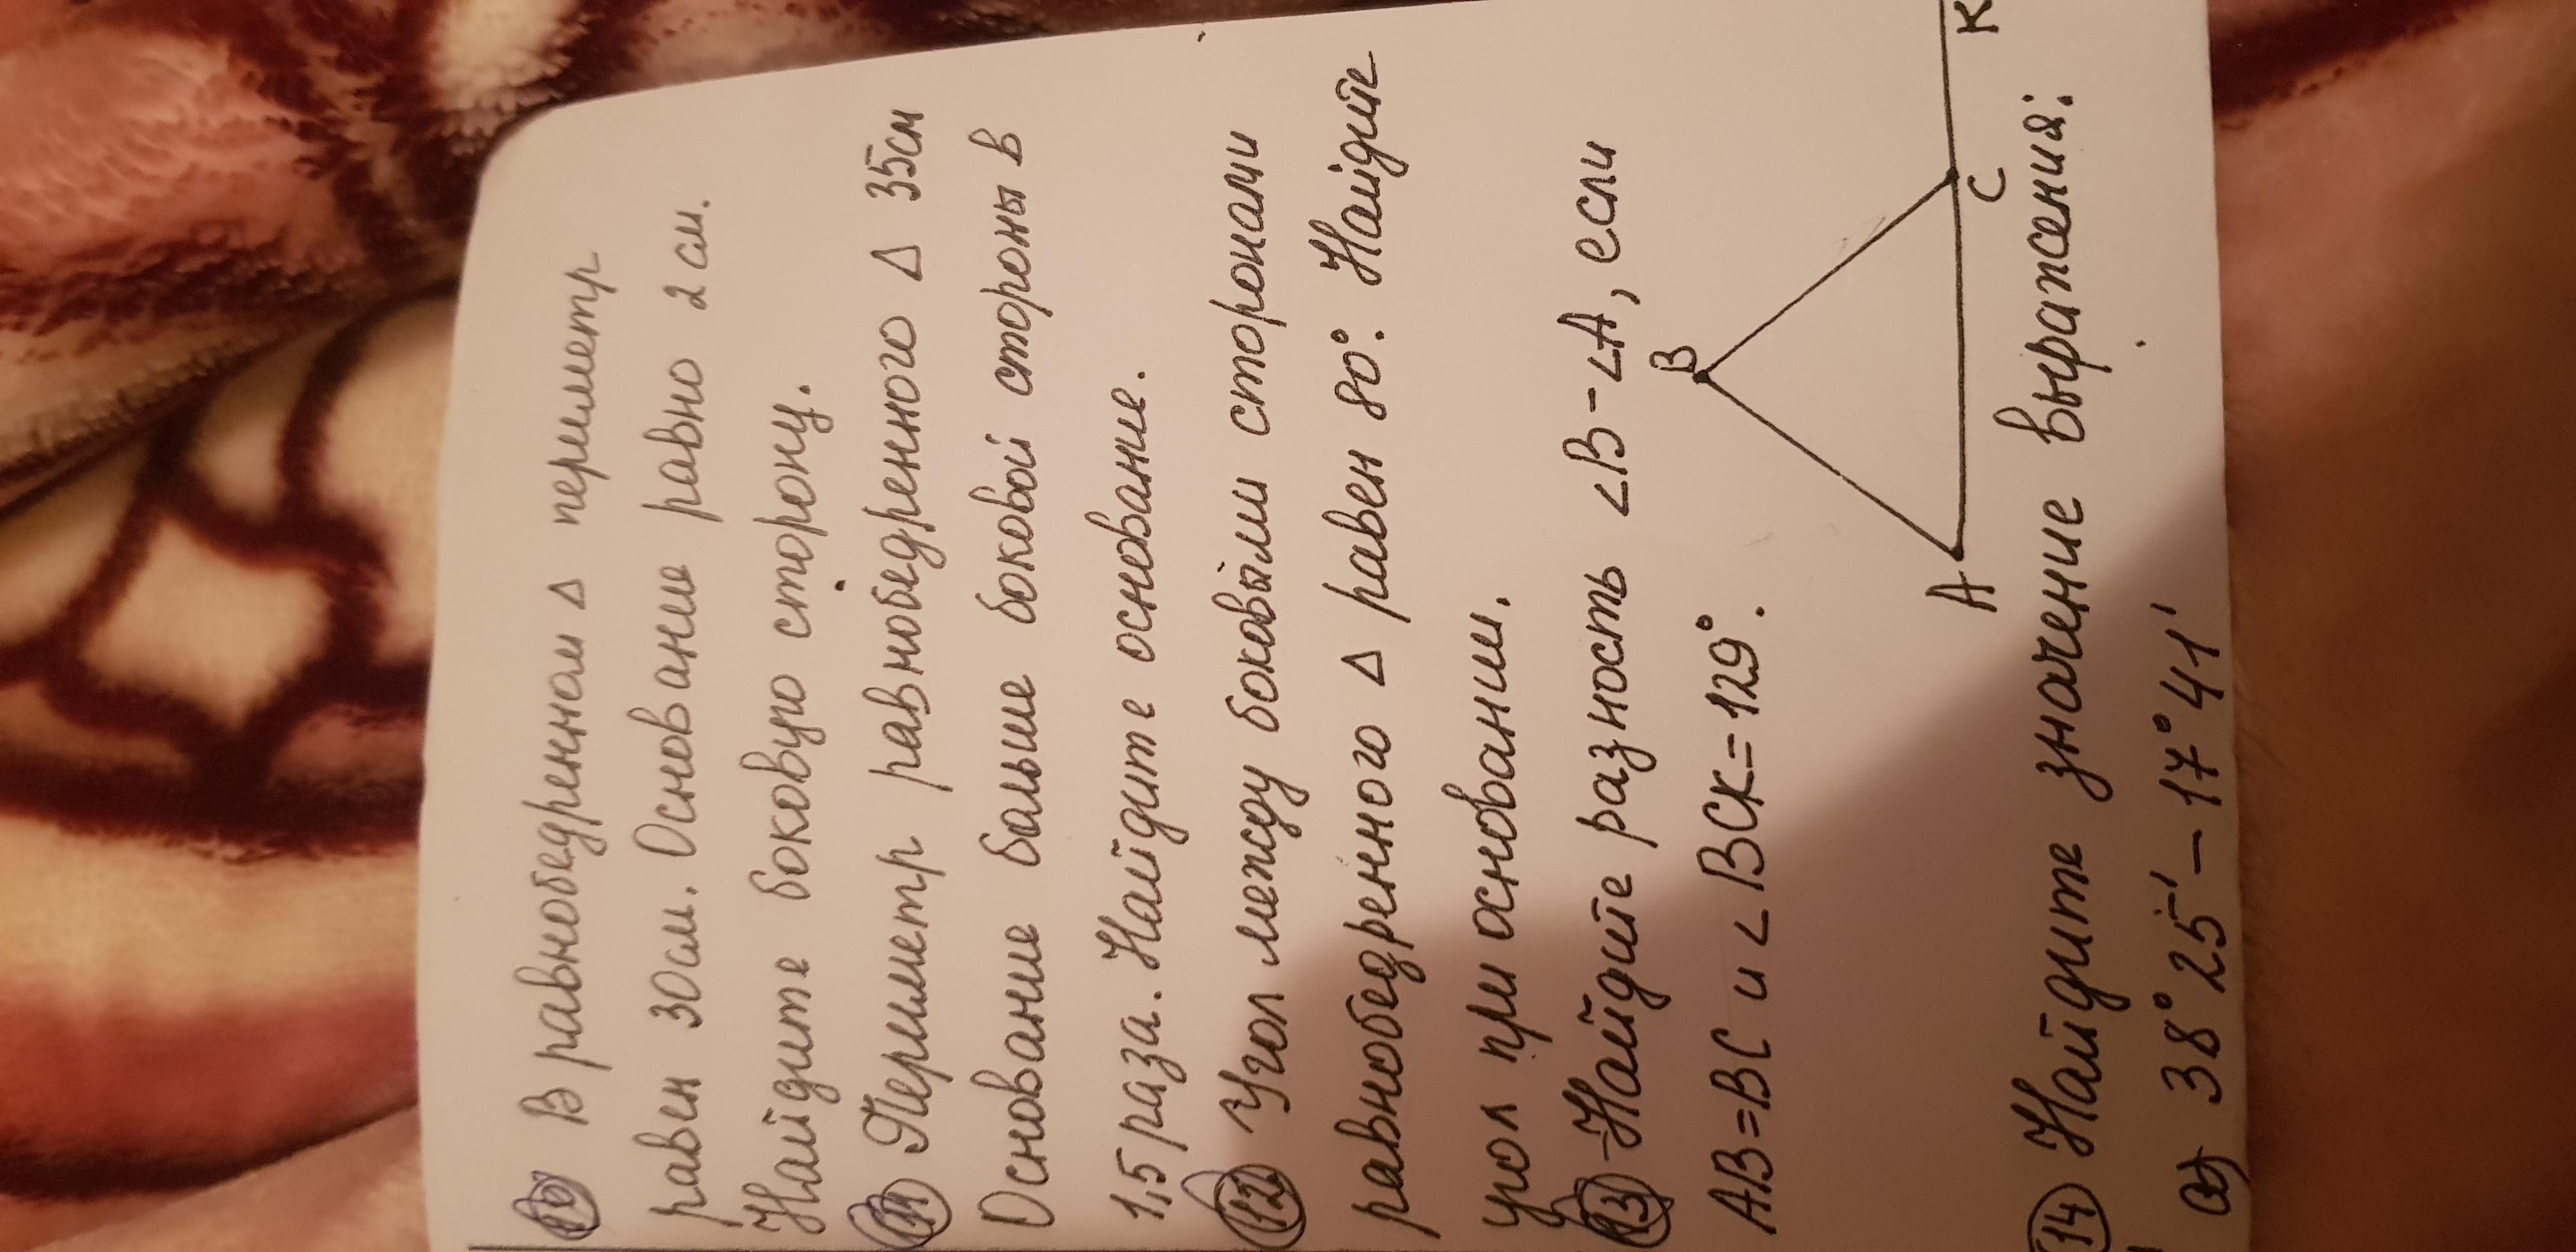 10 В равнобедренном Δ периметр
равен 30см. Основание равно 2 см.
Найдите боковую сторону.
11 Периметр равнобедренного Δ 35см
Основание больше боковой стороны в
1,5 раза. Найдите основание.
12 Угол между боковыми сторонами
равнобедренного Δ равен 80°. Найдите
угол при основании.
13 Найдите разность <B-<A, если
AB=BC и <BCK=129°.
B
A
C
K
14 Найдите значение выражения:
а) 38°25'-17°41'